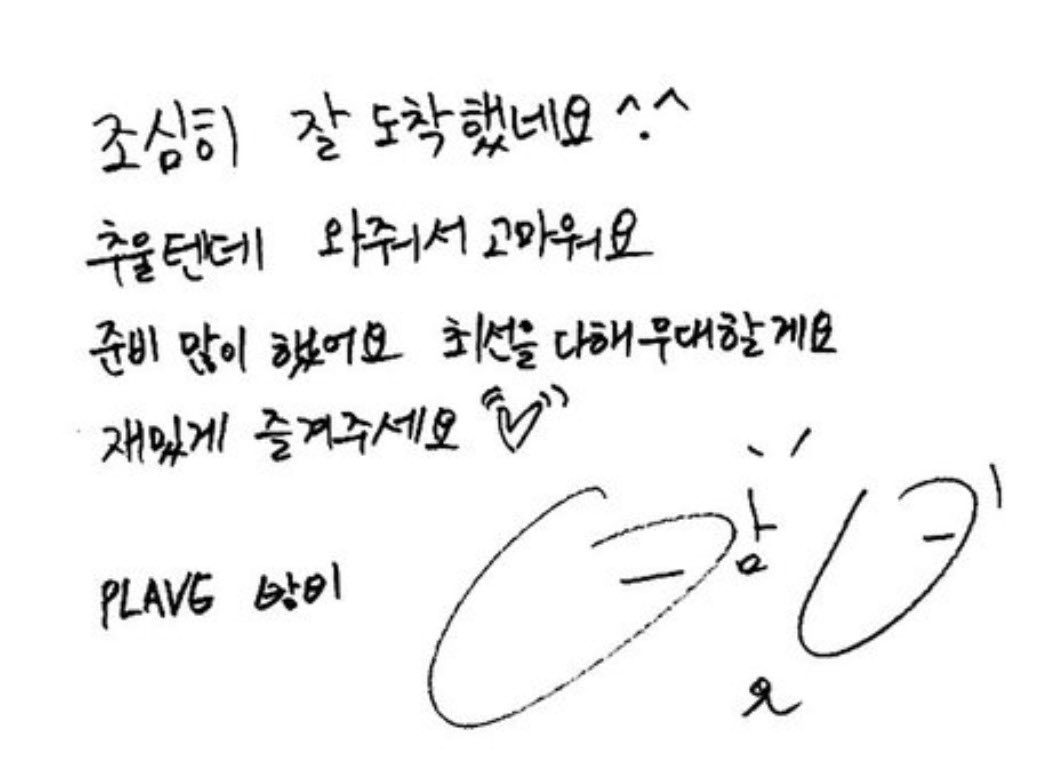 조심히 잘 도착했네요 ^.^
추울텐데 와줘서 고마워요
준비 많이 했어요 최선을 다해 무대할게요
재밌게 즐겨주세요
PLAVE 밤비